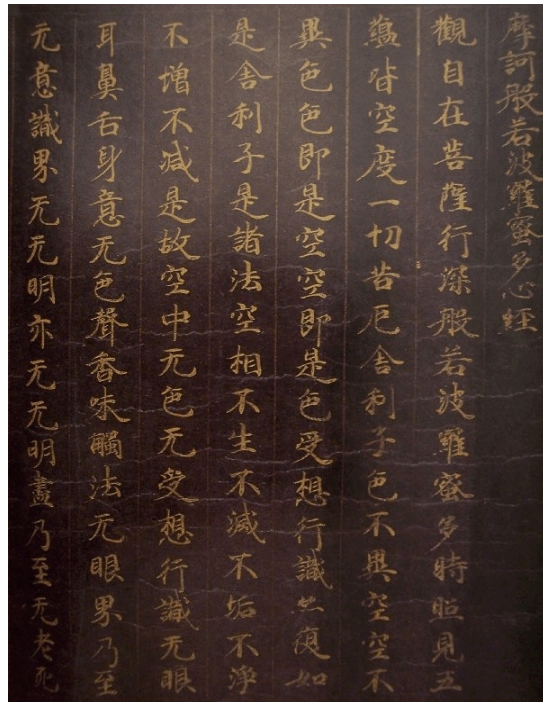 摩訶般若波羅蜜多心経
觀自在菩薩行深般若波羅蜜多時照見五
蘊皆空度一切苦厄舎利子色不異空空不
異色色即是空空即是色受想行識亦復如
是舎利子是諸法空相不生不滅不垢不淨
不增不减是故空中无色无受想行識无眼
耳鼻舌身意无色聲香味觸法无眼界乃至
无意識界无无明亦无无明盡乃至无老死